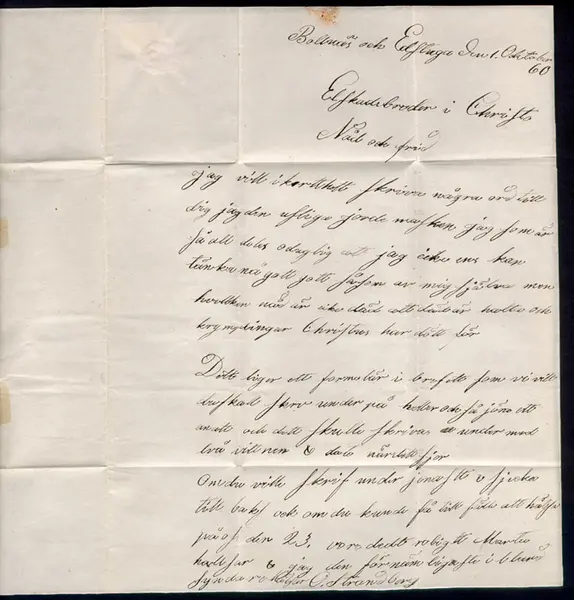 Bollnäs och Elfstuga den 1. October
60
Elskadebroder i Christo
Nåd och frid
jag vill i korthet skriva några ord till
dig jag den usliga jorde masken jag som är
så all deles odaglig att jag icke ens kan
tänka något gott såsom av mig sjelva men
hvilken nåd är icke död att halta och
krymplingar Christus har dött för
Dett liger ett formulär i brefett som vi vill
du skall skriv under på heller och så jöra ett
anatt och dett skulle skrivas under med
två vittnen & dato när dett sjer
om du vill skrif under jenast o sjicka
till baks och om du kunde få till fälle att hälsa
på oss den 23. vore dett roligtt Marta
hälsar & jag den förnämligaste ibland
syndare O. Strandberg